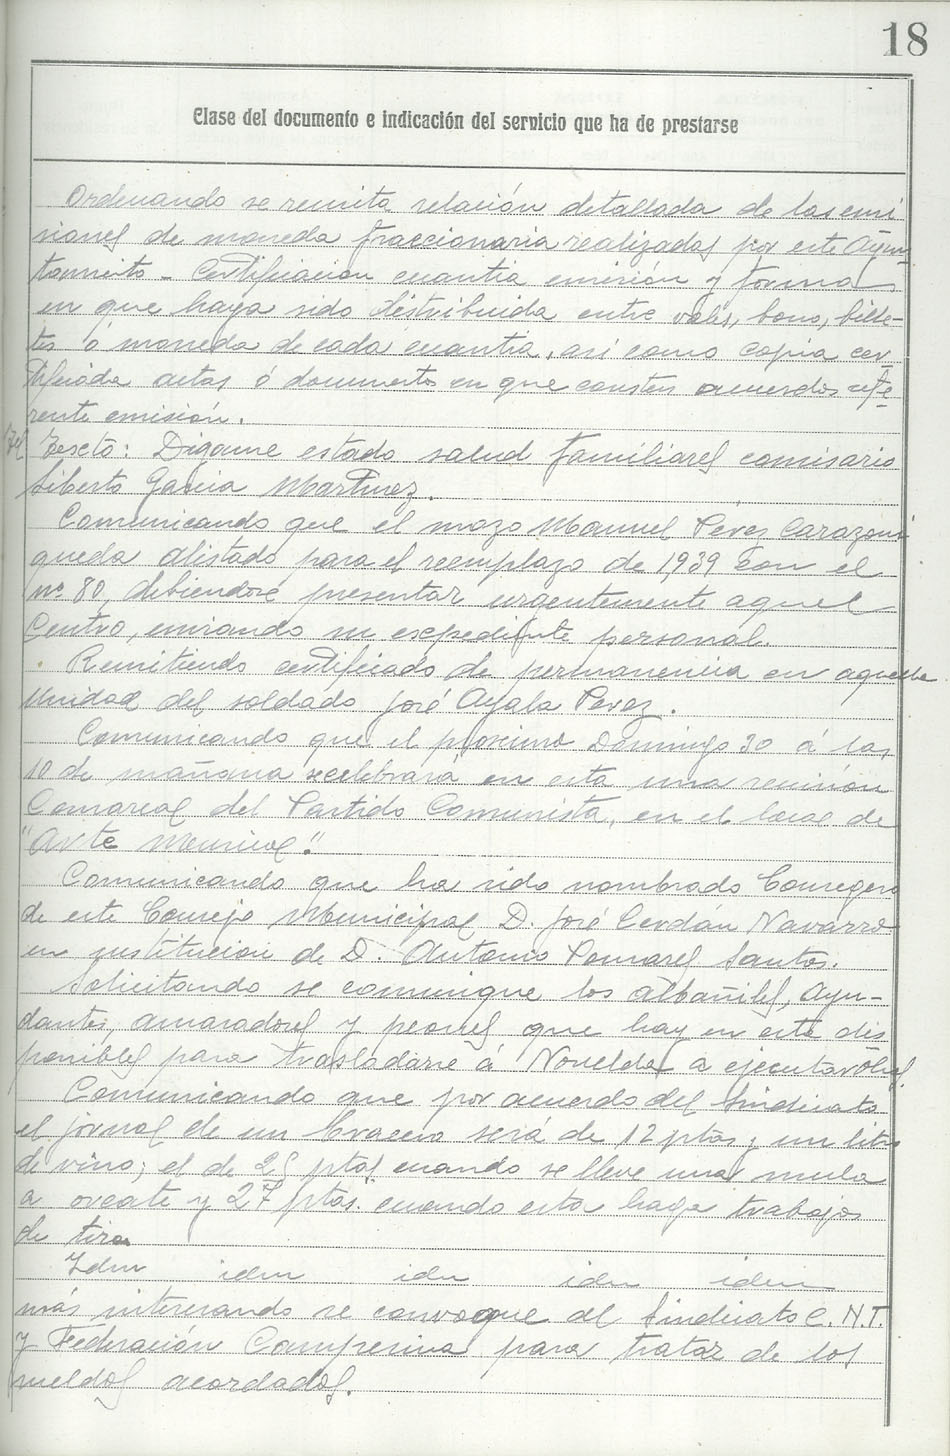 18
Clase del documento e indicación del servicio que ha de prestarse
Ordenando se remita relación detallada de las emi
siones de moneda fraccionaria realizadas por este Ayun
tamiento - Certificacion cuantia emisión y forma
en que haya sido distribuida entre vales, bono, bille-
tes ó moneda de cada cuantia, asi como copia cer
tificada actas ó documentos en que consten acuerdos refe
rente emisión.
Texto: Digame estado salud familiares comisario
Liberto Garcia Martinez.
Comunicando que el mozo Manuel Pérez Carazona
queda alistado para el reemplazo de 1939 con el
nº 80, debiendose presentar urgentemente aquel
Centro, enviando su expediente personal.
Remitiendo certificado de permanencia en aquella
Unidad del soldado José Ayala Perez.
Comunicando que el proximo Domingo 30 á las
10 de mañana se celebrará en esta una reunión
Comarcal del Partido Comunista, en el local de
"Arte Musical".
Comunicando que ha sido nombrado Consegero
de este Consejo Municipal D. José Cerdán Navarro
en sustitucion de D. Antonio Pomares Santos.
Solicitando se comunique los albañiles, Ayu-
dantes, amasadores y peones que hay en esta dis
ponibles para trasladarse á Novelda a ejecutar obras.
Comunicando que por acuerdo del Sindicato
el jornal de un bracero será de 12 ptas y un litro
de vino; el de 25 ptas cuando se lleve una mula
a orcate y 27 ptas. cuando esta haga trabajos
de tiro
Idem idem idem idem idem
más interesando se convoque al Sindicato C.N.T.
y Federación Campesina para tratar de los
sueldos acordados.